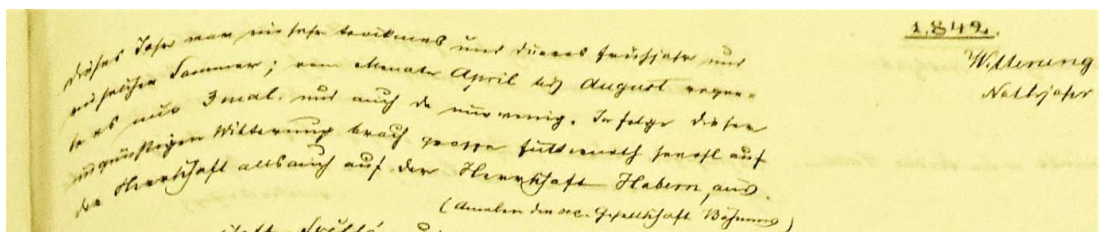 1842.
Witterung
Nothjahr
Dieses Jahr war ein sehr trockenes und dürres Frühjahr und
ein solcher Sommer; vom Monate April bis August regne-
te es nur 3mal. und auch da nur wenig. In folge dieser
ungünstigen Witterung brach grosse Futternoth sowohl auf
der Herrschaft als auch auf der Herrschaft Habern, aus.
(Annalen der oec. Gesellschaft Böhmens)